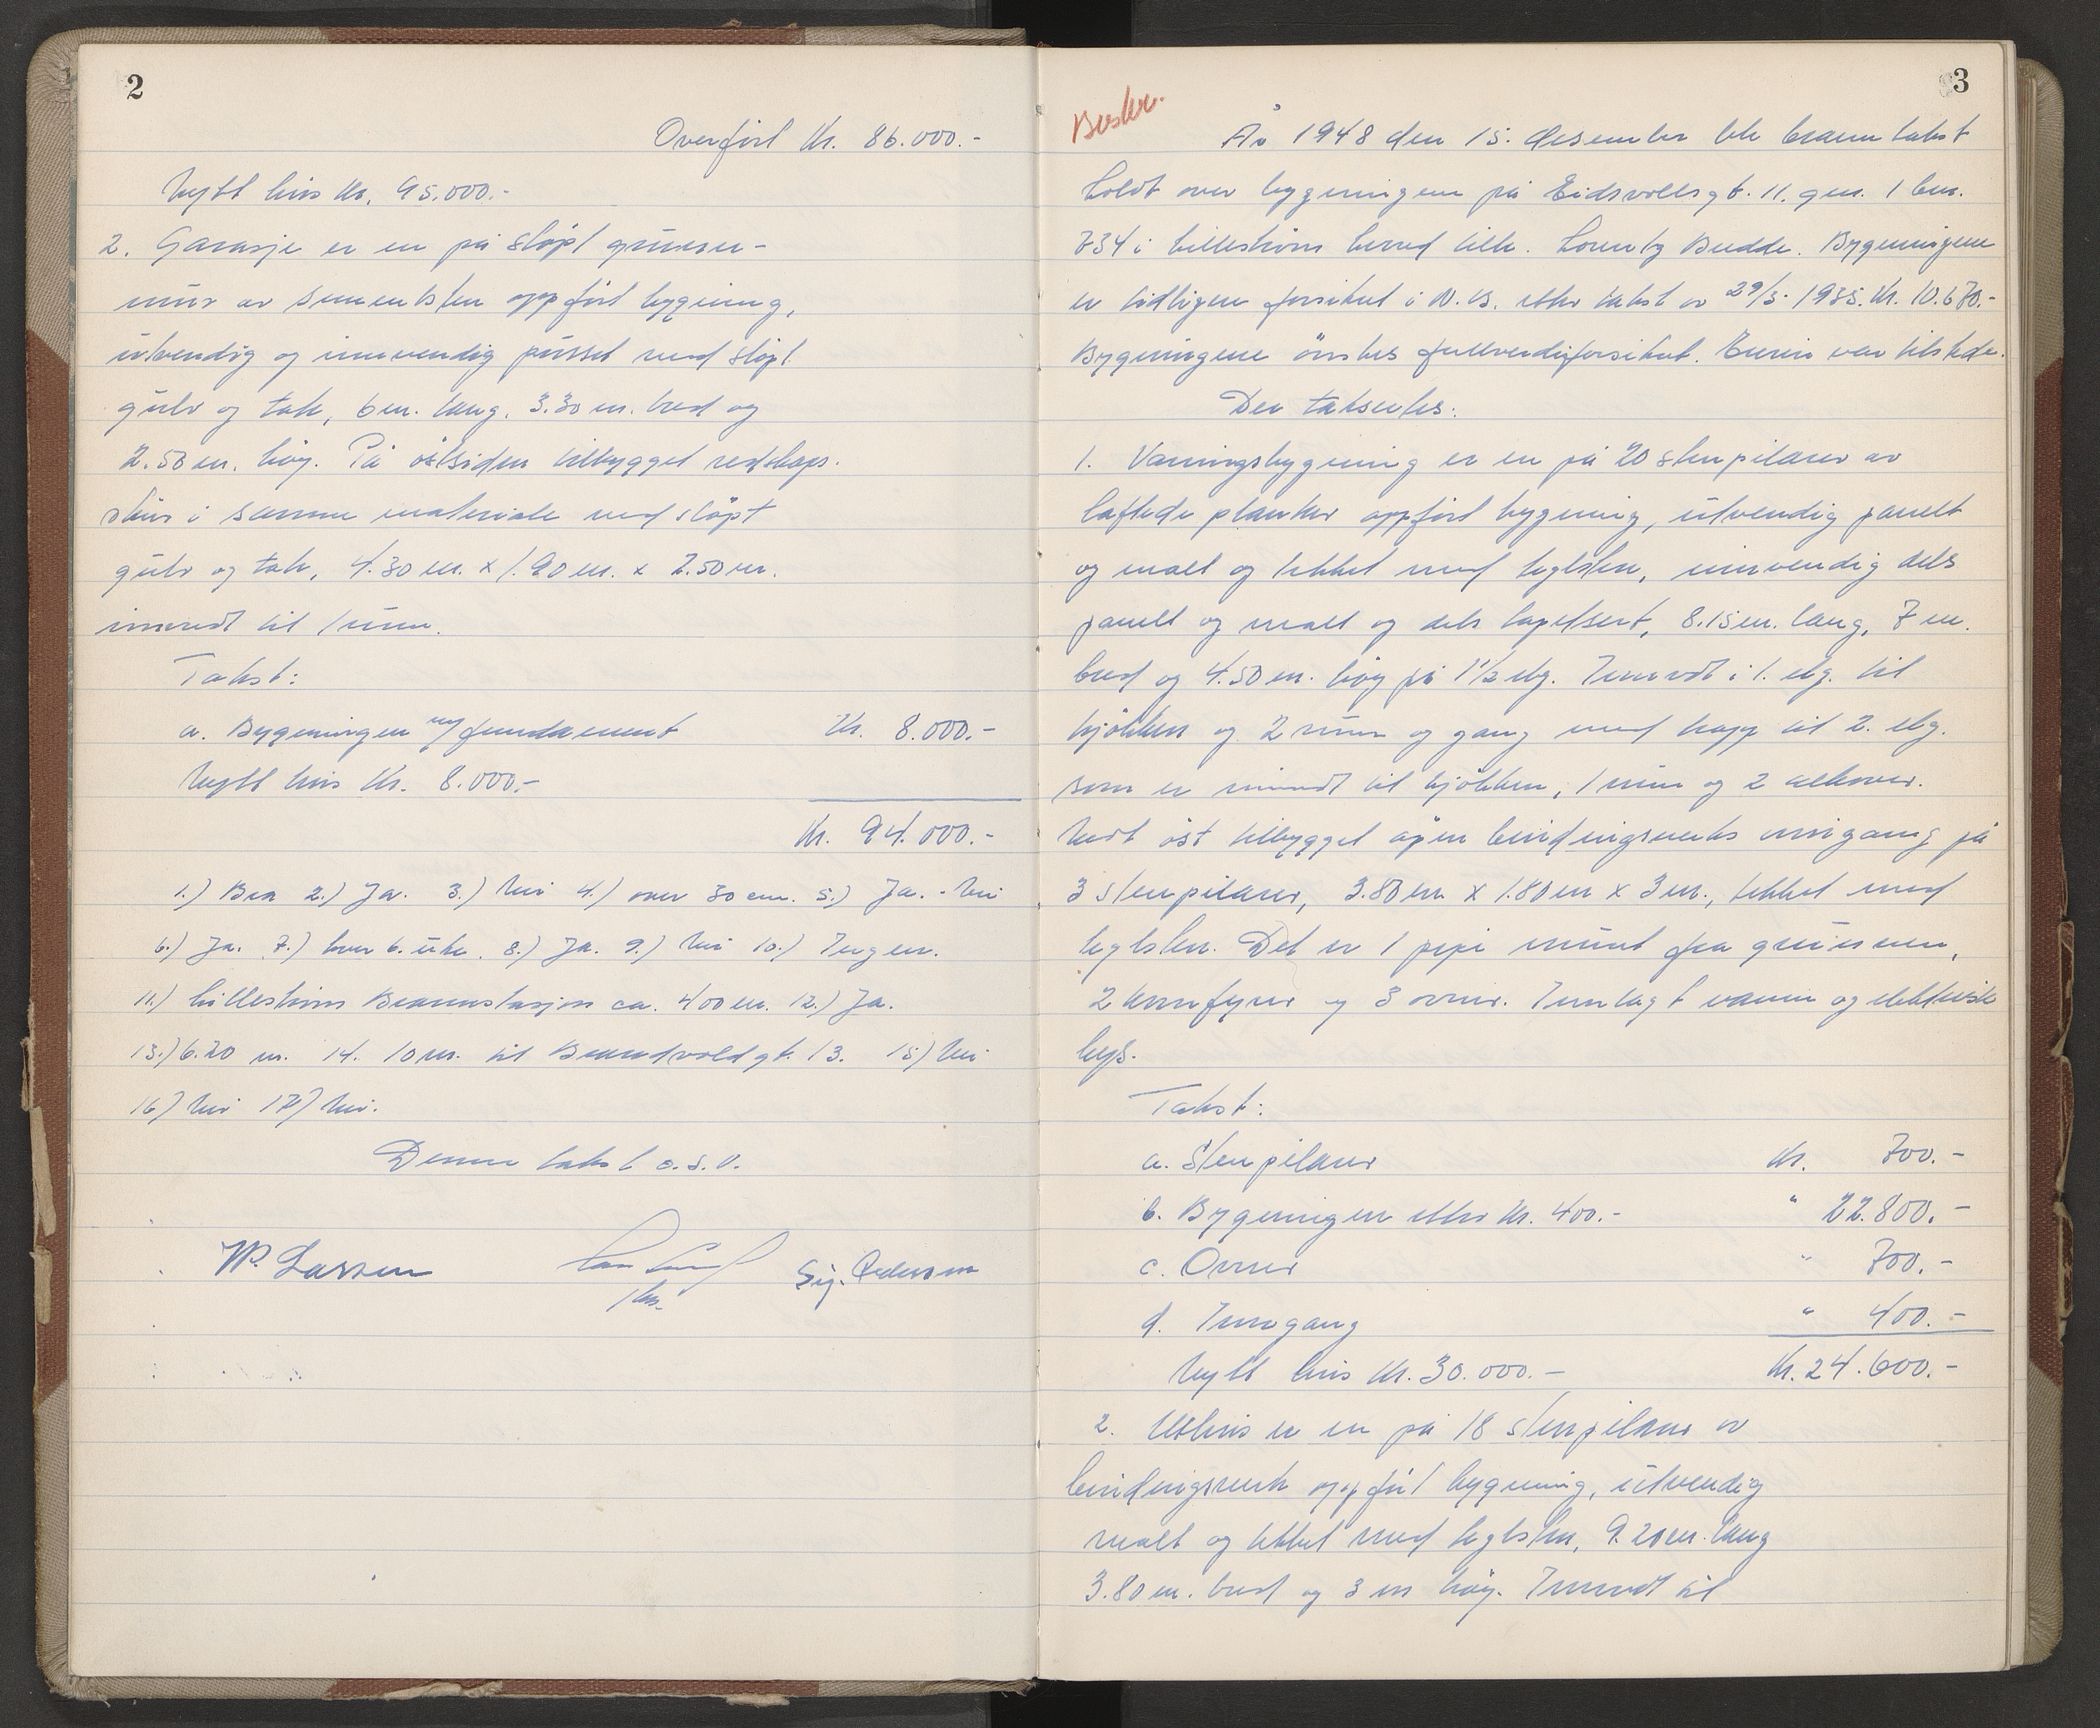 2
Overført Kr. 86.000.-
Nytt hus Kr. 95.000.-
2. Garasje er en på støpt grunn-
mur av sementsten oppført bygning,
utvendig og innvendig pusset med støpt
gulv og tak, 6 m. lang, 3.30 m. bred og
2.50 m. høy. På östsiden tilbygget redskaps-
skur i samme materiale med støpt
gulv og tak, 4.30 m. x 1.90 m. x 2.50 m.
innredt til 1 rum.
Takst:
a. Bygningen m/fundament Kr. 8.000.-
Nytt hus Kr. 8.000.-
Kr. 94.000.-
1.) Bra 2.) Ja. 3.) Nei 4.) over 30 cm. 5.) Ja. - Nei
6.) Ja. 7.) hver 6. uke. 8.) Ja. 9.) Nei 10.) Ingen.
11.) Lilleström Brannstasjon ca. 400 m. 12.) Ja.
13.) 6.20 m. 14. 10 m. til Brandvoldgt. 13. 15) Nei
16) Nei 17) Nei.
Denne takst o.s.v.
W. Larsen Sig. Pedersen
3
Beskr.
År 1948 den 15. desember ble branntakst
holdt over bygningene på Eidsvollsgt. 11. gnr. 1 bnr.
734 i Lilleström herred tilh. Lorentz Budde. Bygningene
er tidligere forsikret i N.B. etter takst av 29/5. 1935. Kr. 10.670.-
Bygningene önskes fullverdiforsikret. Eieren var tilstede.
Der takseres:
1. Våningsbygning er en på 20 stenpilarer av
laftede planker oppført bygning, utvendig panelt
og malt og tekket med teglsten, innvendig dels
panelt og malt og dels tapetsert, 8.15 m. lang, 7 m.
bred og 4.50 m. høy på 1 1/2 etg. Innredt i 1. etg. til
kjökken og 2 rum og gang med trapp til 2. etg.
som er innredt til kjökken, 1 rum og 2 alkover.
Mot öst tilbygget åpen bindingsverks inngang på
3 stenpilarer, 3.80 m x 1.80 m x 3 m., tekket med
teglsten. Det er 1 pipe murt fra grunnen,
2 komfyrer og 3 ovner. Innlagt vann og elektrisk
lys.
Takst:
a. Stenpilarer Kr. 700.-
b. Bygningen etter Kr. 400.- " 22.800.-
c. Ovner " 700.-
d. Inngang " 400.-
Nytt hus Kr. 30.000.- Kr. 24.600.-
2. Uthus er en på 18 stenpilarer av
bindingsverk oppført bygning, utvendig
malt og tekket med teglsten, 9.20 m. lang
3.80 m. bred og 3 m høy. Innredt til